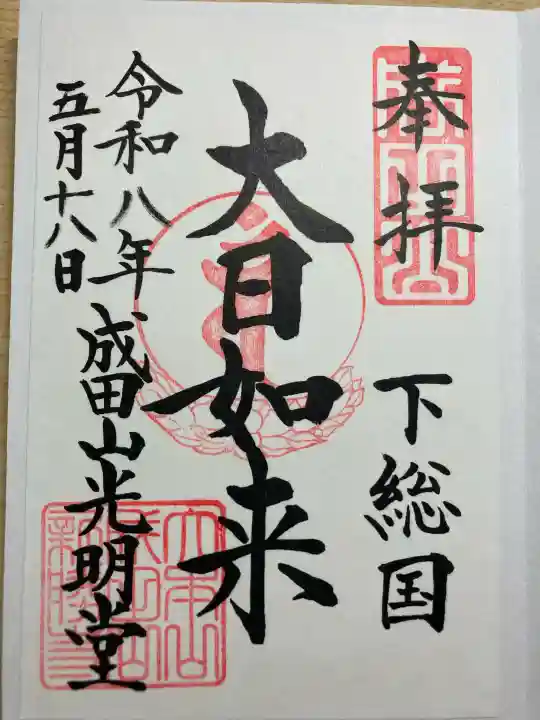 奉拝
下総国
大日如来
令和八年
五月十八日
成田山光明堂